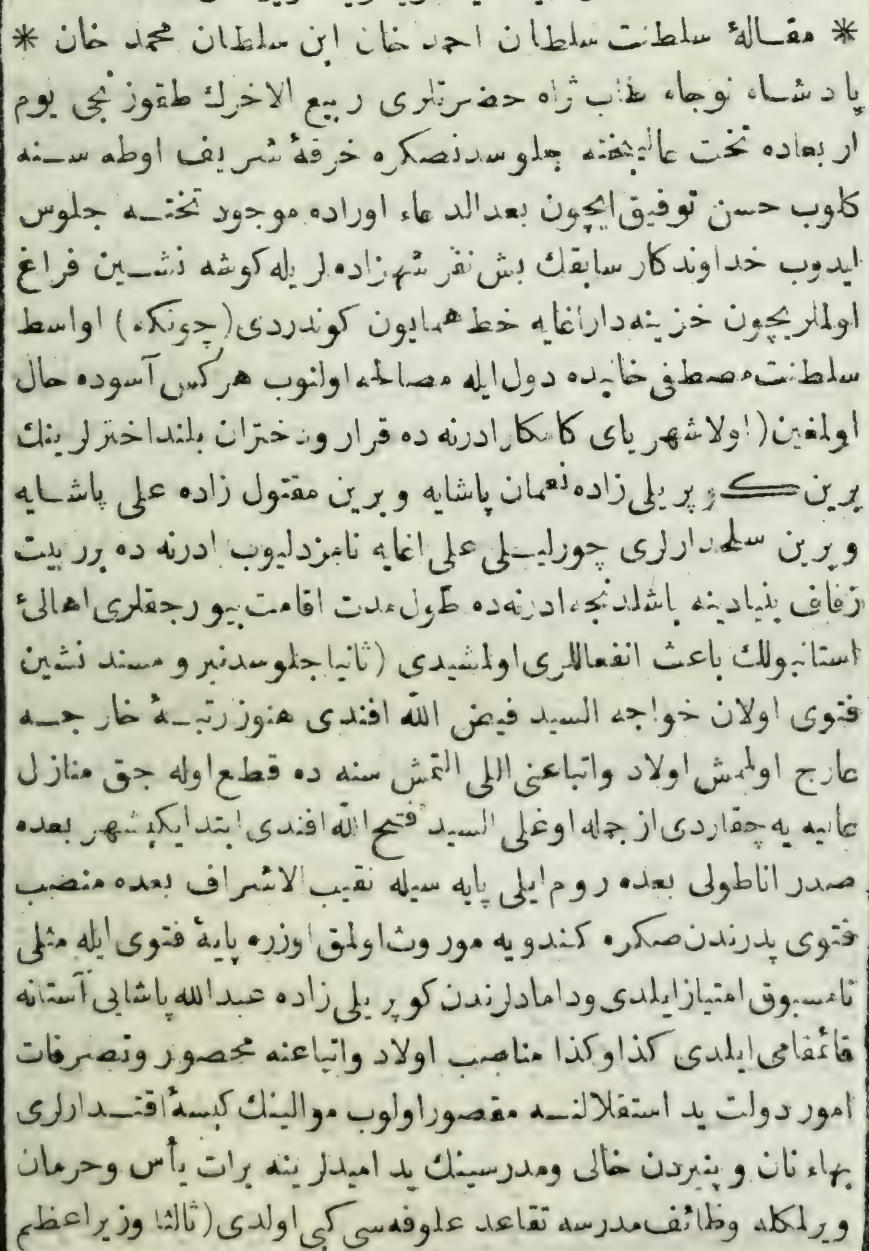 * مقالهٔ سلطنت سلطان احمد خان ابن سلطان محمد خان *
پادشاه نوجاه حضرتلری ربیع الاخرك طقوز نجی یوم
اربعاده تخت عالیبخته جلوسدنصكره خرقهٔ شریف اوطه سنه
كلوب حسن توفیق ایچون بعدالدعاء اوراده موجود تخته جلوس
ایدوب خداوندكار سابقك بش نفر شهزاده لریله كوشه نشین فراغ
اولملریچون خزینه دار اغایه خط همایون كوندردی (چونكه) اواسط
سلطنت مصطفی خانیده دول ایله مصالحه اولنوب هركس آسوده حال
اولمغین (اولا شهریای كامكار ادرنه ده قرار و دختران بلند اخترلرینك
برین كوپریلی زاده نعمان پاشایه و برین مقتول زاده علی پاشایه
و برین سلحدارلری چورلیلی علی اغایه نامزدلیوب ادرنه ده برر بیت
زفاف بنیادینه باشلدنجه ادرنه ده طول مدت اقامت بیورجقلری اهالیٔ
استانبولك باعث انفعاللری اولمشیدی (ثانیا جلوسدنبرو مسند نشین
فتوی اولان خواجه السید فیض الله افندی هنوز رتبهٔ خارجه
عارج اولمش اولاد واتباعنی اللی التمش سنه ده قطع اوله جق منازل
عالیه یه چقاردی از جمله اوغلی السید فتح الله افندی ابتدا یكیشهر بعده
صدر اناطولی بعده روم ایلی پایه سیله نقیب الاشراف بعده منصب
فتوی پدرندن صكره كندویه موروث اولمق اوزره پایهٔ فتوی ایله مثلی
نامسبوق امتیاز ایلدی ودامادلرندن كوپریلی زاده عبدالله پاشایی آستانه
قائمقامی ایلدی كذا وكذا مناصب اولاد واتباعنه محصور وتصرفات
امور دولت ید استقلالنه مقصور اولوب موالینك كیسهٔ اقتدارلری
بهاء نان و پنیردن خالی ومدرسینك ید امیدلرینه برات یأس وحرمان
ویرلمكله وظائف مدرسه تقاعد علوفه سی كبی اولدی (ثالثا وزیراعظم